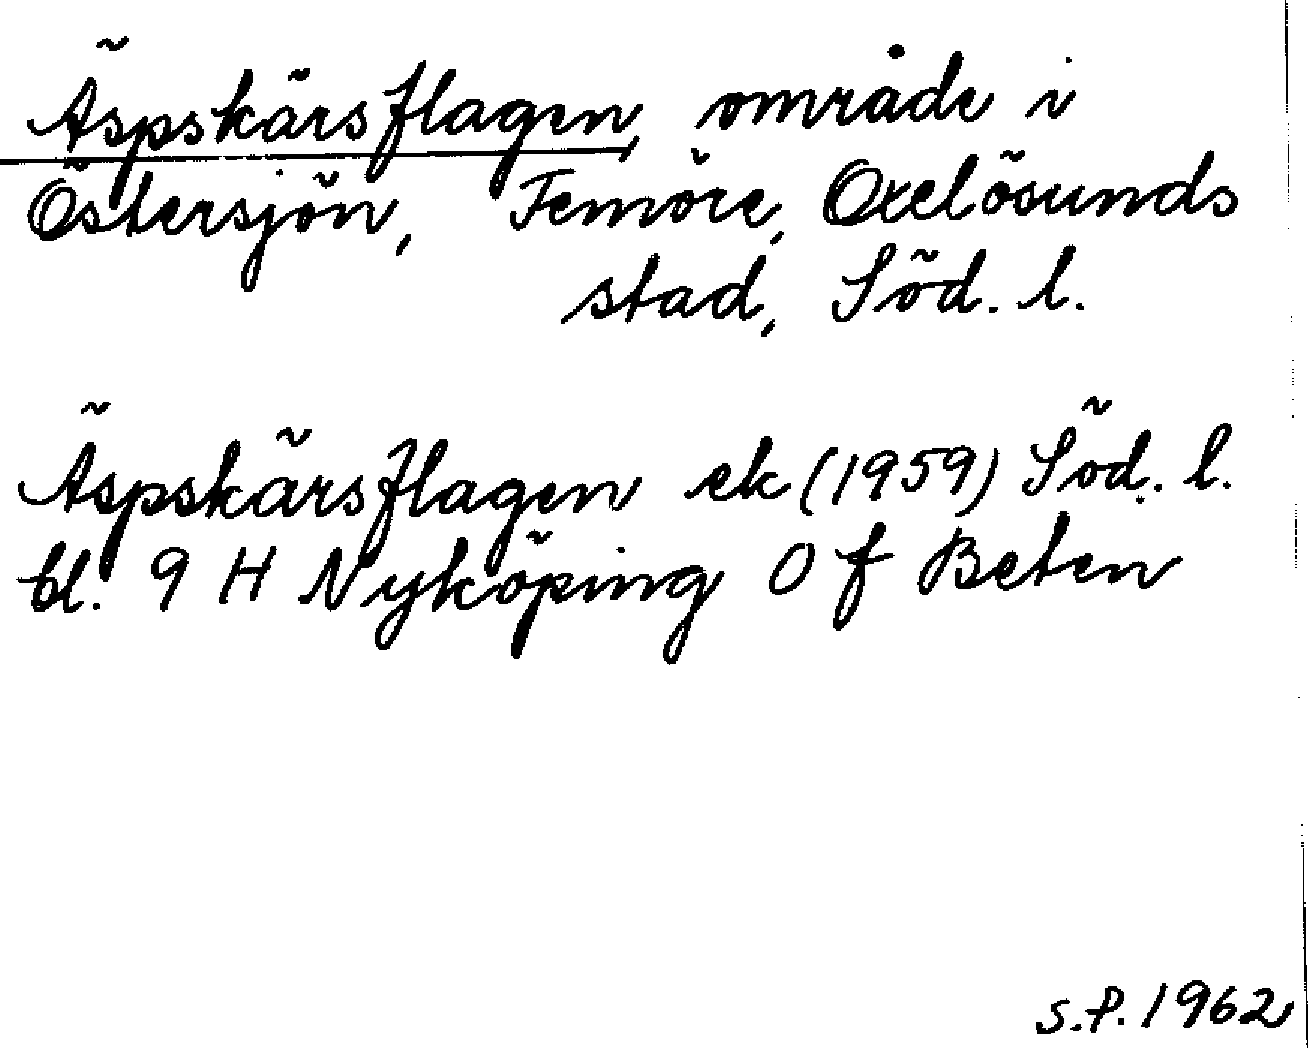 Äspskärsflagen, område i
Östersjön, Femöre, Oxelösunds
stad, Söd. l.
Äspskärsflagen ek (1959) Söd. l.
bl. 9 H Nyköping 0 f Beten
S.P. 1962